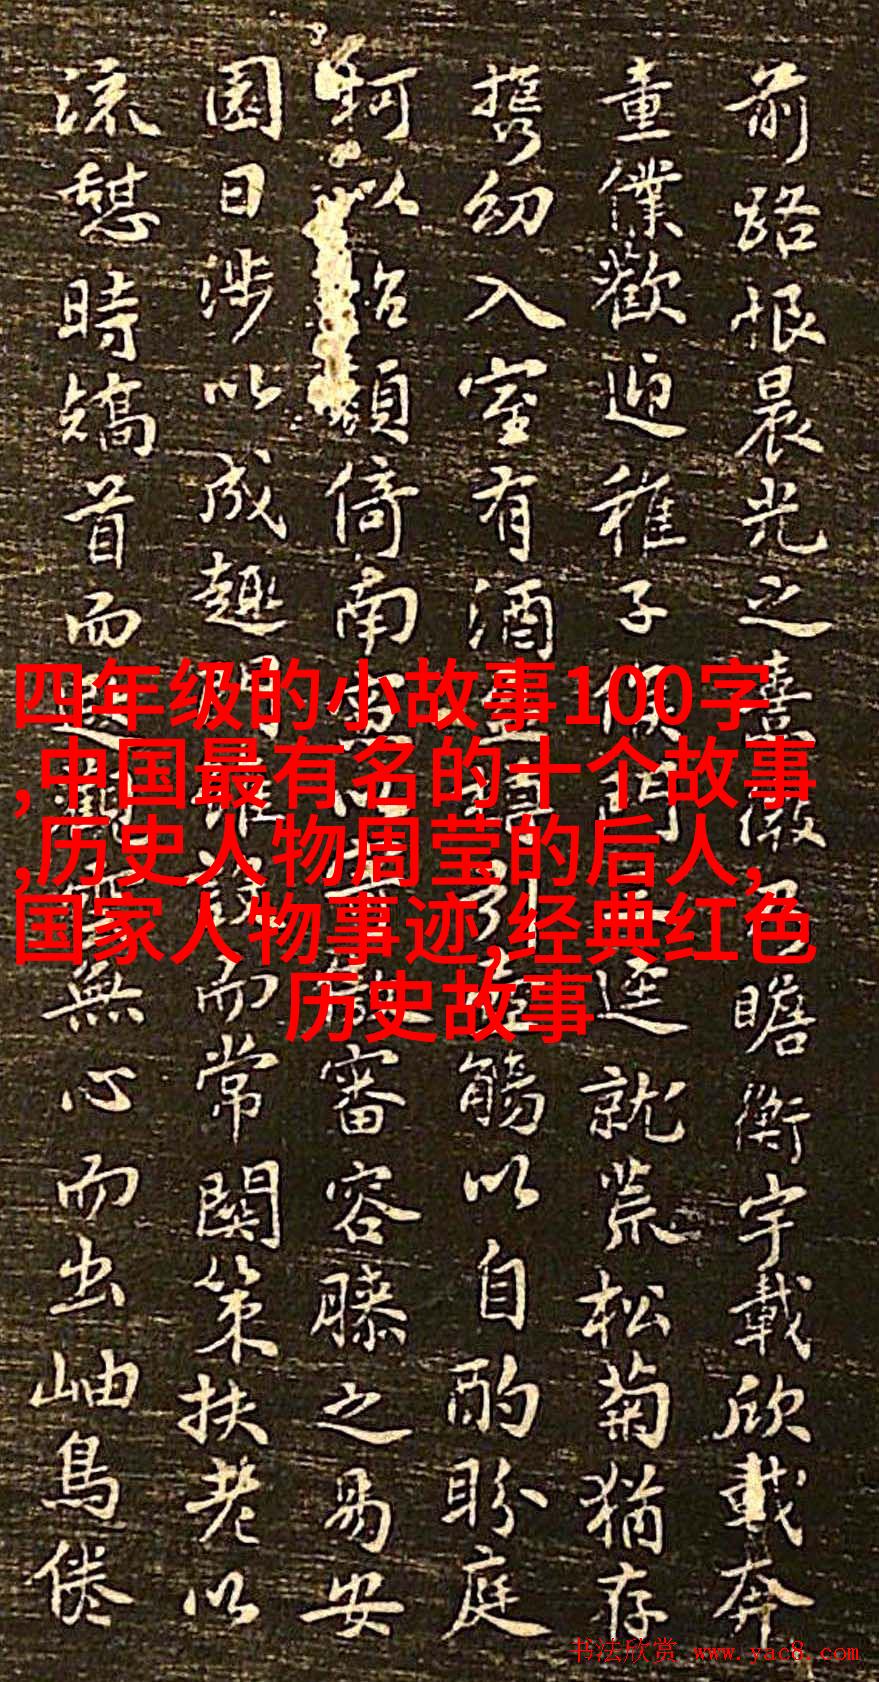 前路恨晨光之熹微乃瞻衡宇載欣載奔
童僕歡迎稚子候門三逕就荒松菊猶存
携幼入室有酒引壺觴以自酌盼庭
柯以怡顏倚南窗以審容膝之易安
園日涉以成趣門雖設而常關策扶老以
流憩時矯首而遐觀雲無心而出岫鳥倦
四年级的小故事100字
,中国最有名的十个故事
,历史人物周莹的后人,
国家人物事迹,经典红色
历史故事
书法欣赏 www.yac8.com